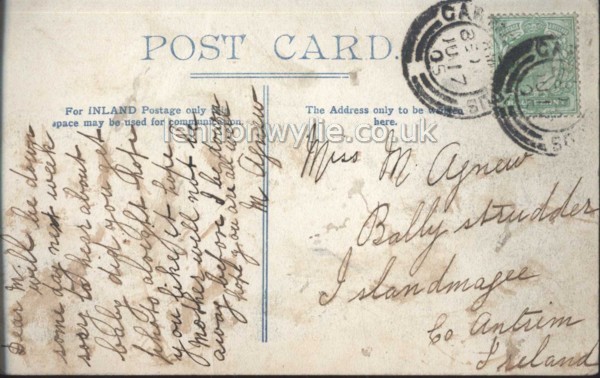 POST CARD.
For INLAND Postage only
space may be used for communication.
The Address only to be written
here.
Dear M
will be down
some day next week
sorry to hear about
baby did you get
photo alright hope
you like it hope
Mother will not be
away before I be down
hope you are all well
M Agnew
Miss M. Agnew
Ballystrudder
Islandmagee
Co Antrim
Ireland
JU 17
05
lennonwylie.co.uk